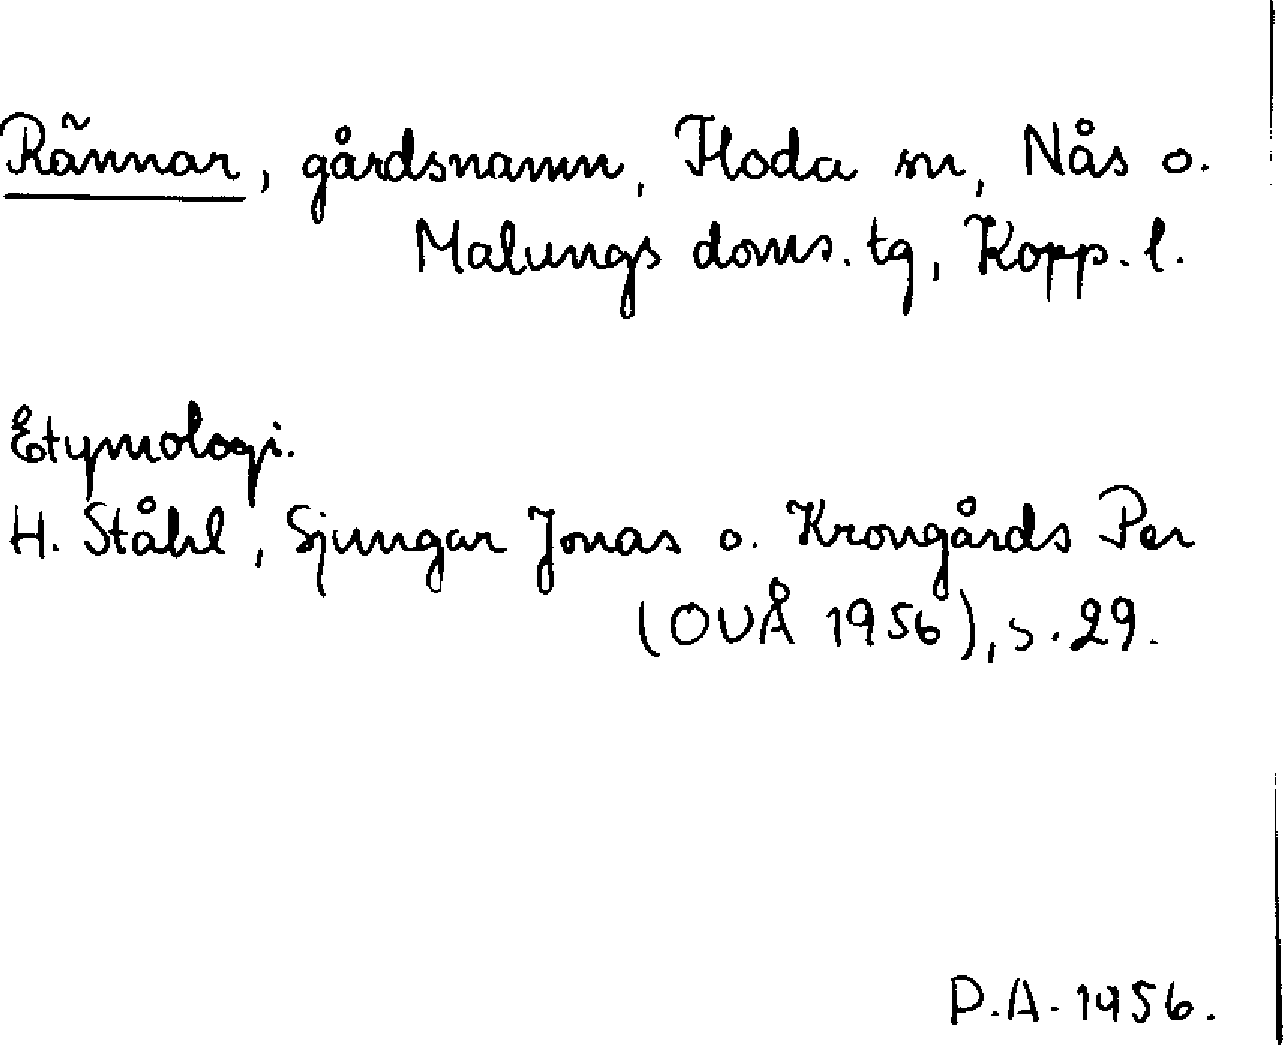 Rännar, gårdsnamn, Floda sn, Nås o.
Malungs doms. tg, Kopp. l.
Etymologi.
H. Ståhl, Sjungar Jonas o. Krongårds Per
(OUÅ 1956), s. 29.
P.A. 1956.